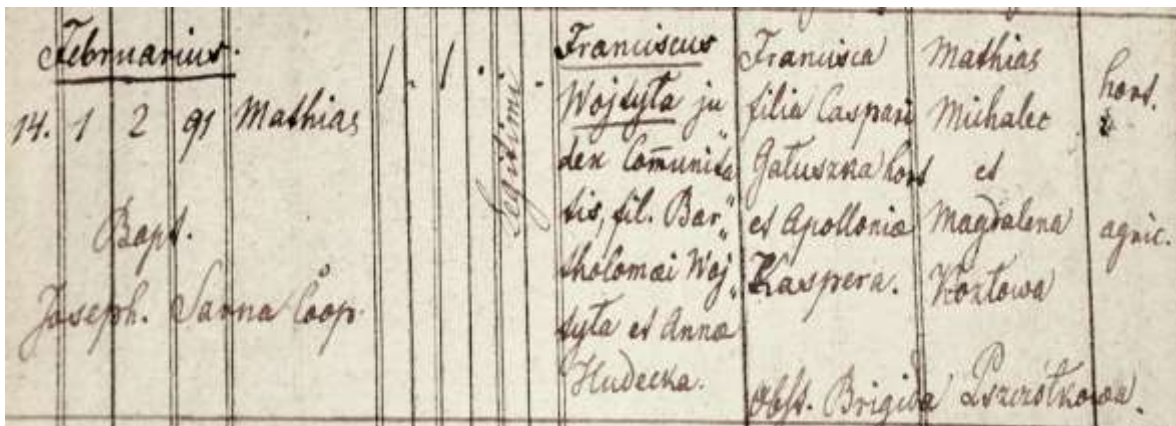 Februarius.
14. 1 2 91 Mathias
Bapt.
Joseph. Sarna Coop.
1. 1.
Legitimi
Franciscus
Wojtyła ju
dex Com̄unita
tis, fil. Bar„
tholomæi Woj„
tyła et Annæ
Hudecka.
Francisca
filia Caspari
Gałuszka hort
et Apolloniæ
Kaspera.
Mathias
Michalec
et
Magdalena
Kozłowa
hort.
agric.
Obst. Brigida Pszczółkowa.